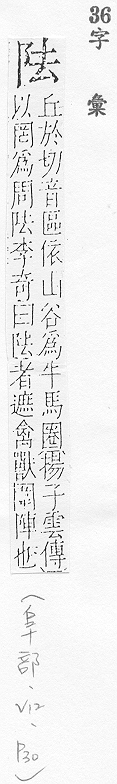 36字
彙
阹
丘於切音區依山谷爲牛馬圈揚子雲傳
以罔爲周阹李奇曰阹者遮禽獸圍陣也
(阜部、V12、P30)